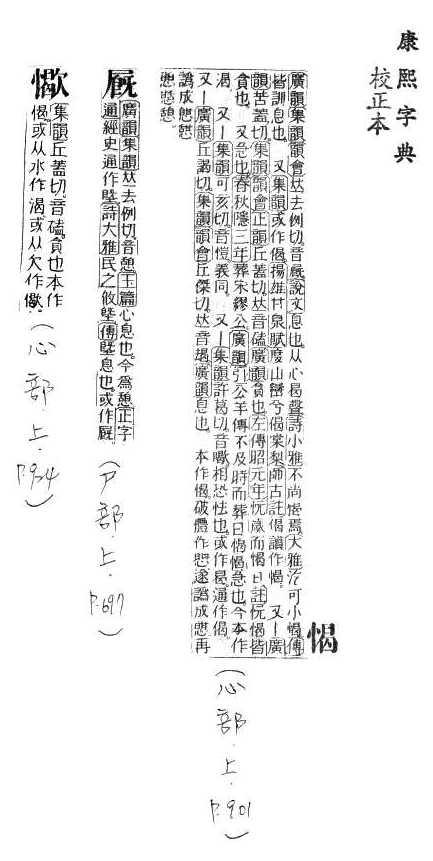 康熙字典
校正本
愒
廣韻集韻韻會𠀤去例切音憩說文息也从心曷聲詩小雅不尚愒焉大雅汔可小愒傳
皆訓息也 又集韻或作偈揚雄甘泉賦度山巒兮偈棠梨師古註偈讀作愒 又丨廣
韻苦蓋切集韻韻會正韻丘蓋切𠀤音磕廣韻貪也左傳昭元年忨歲而愒日註忨愒皆
貪也 又急也春秋隱三年葬宋繆公廣韻引公羊傳不及時而葬曰愒愒急也今本作
渴 又丨集韻可亥切音愷義同 又丨集韻許葛切音喝相恐怯也或作曷通作偈
又丨廣韻丘謁切集韻韻會丘傑切𠀤音朅廣韻息也 本作愒破體作憇遂譌成憩再
譌成
(心部.上.P.901)
廣韻集韻𠀤去例切音憩玉篇心息也今為憩正字
通經史通作塈詩大雅民之攸塈傳塈息也或作
(尸部.上.P.697)
集韻丘蓋切音磕貪也本作
愒或从水作渴或从欠作
(心部.上.P.934)